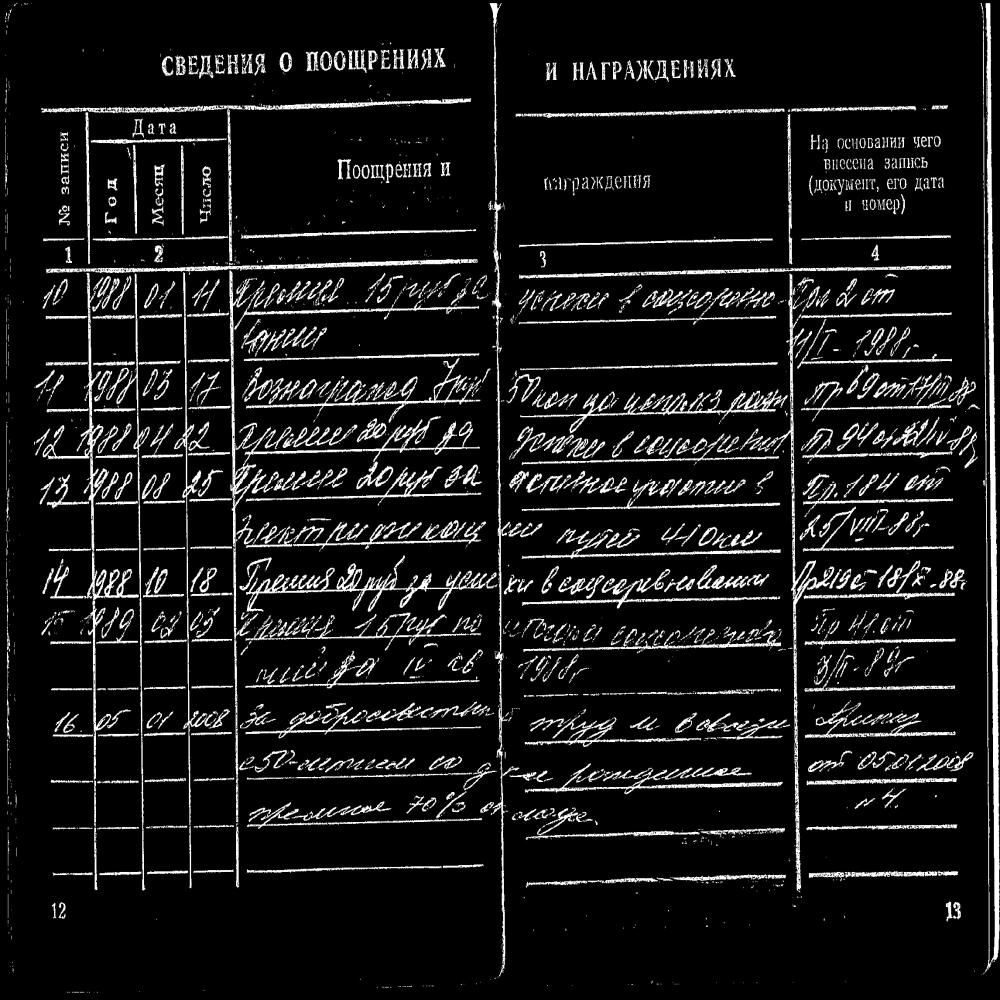 СВЕДЕНИЯ О ПООЩРЕНИЯХ И НАГРАЖДЕНИЯХ
№ записи Дата Поощрения и награждения На основании чего
внесена запись
(документ, его дата
и номер)
Год Месяц Число
1 2 3 4
10 1988 01 11 Премия 15 руб за успехи в соцсоревно- Пр. 2 от
вании 11/I - 1988г.
11 1988 03 17 Вознагражд 7 руб 50 коп за использ рац. пр 69 от 17/III 88
12 1988 04 22 Премия 20 руб за успехи в соцсоревн. пр 94 от 22/IV 88г
13 1988 08 25 Премия 20 руб за активное участие в Пр. 184 от
электрификации путей 410 км 25/VIII-88г
14 1988 10 18 Премия 20 руб за успехи в соцсоревновании Пр 219 от 18/X-88г
15 1989 02 03 Премия 15 руб по итогам соцсоревнова Пр 41 от
ний за IV кв 1988г 3/II-89г
16 05 01 2008 За добросовестный труд и в связи Приказ
с 50-летием со дня рождения от 05.01.2008
премия 70% оклада. №4.
12
13